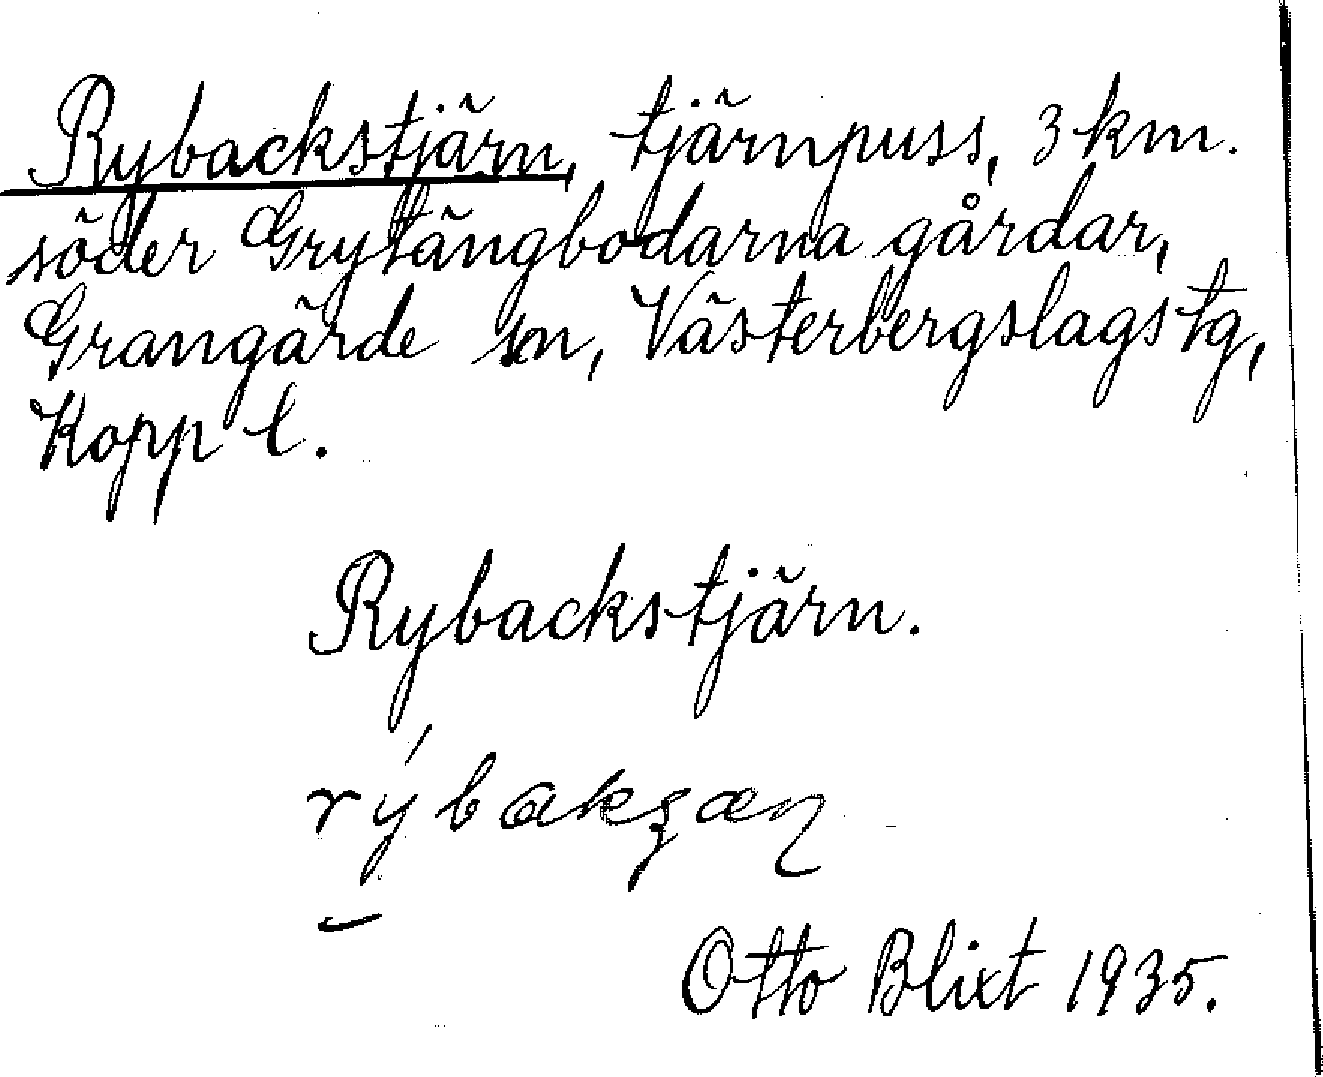 Rybackstjärn, tjärnpuss, 3 km.
söder Grytängbodarna gårdar,
Grangärde sn, Västerbergslags tg,
Kopp l.
Rybackstjärn.
Otto Blixt 1935.